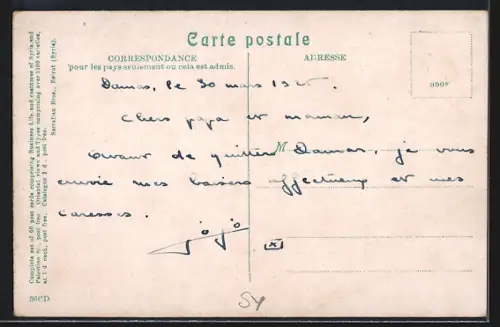 Carte postale
CORRESPONDANCE
pour les pays seulement ou cela est admis.
ADRESSE
Damas, le 30 mars 192
chers papa et maman,
avant de quitter Damas, je vous
envoie mes baisers affectueux et mes
caresses.
jojo
M
Complete set of 60 post cards comprising Business Life and costumes of Syria and
Palestine post free. Oriental views and types comprising over 1500 varieties,
at 1 d each, post free. Catalogue 3 d. post free.
Sarrafian Bros., Beirut (Syria).
36CD
SY